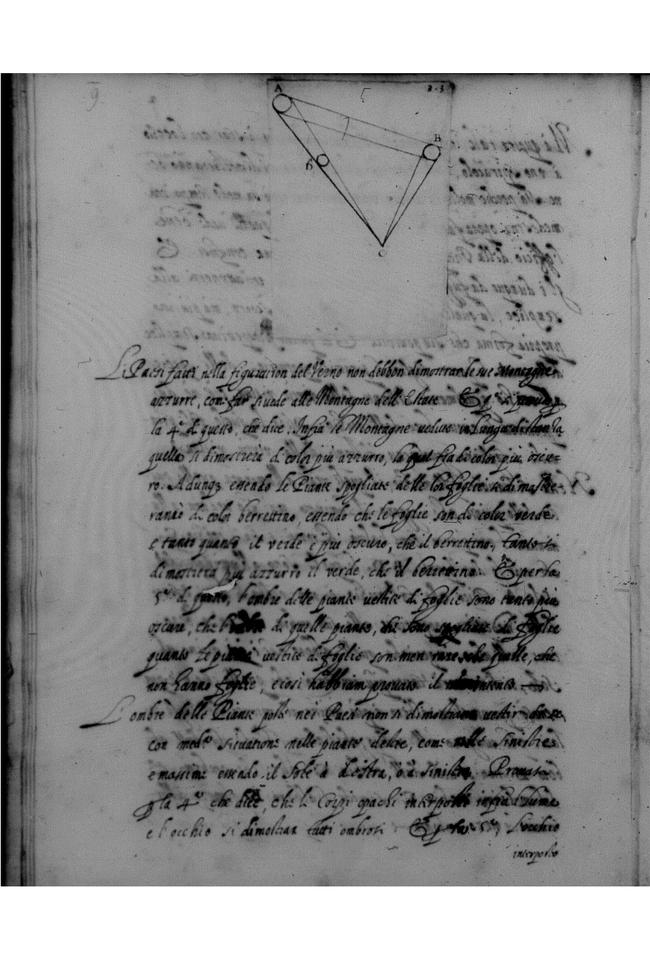 9
A 5 2.3
7 B
6
C
Li Paesi fatti nella figuration del Verno non debbon dimostrar le sue Montagne
azzurre, come far si uede alle Montagne dell'Estate. Et
la 4ª di questo, che dice: Infra le Montagne uedute in lunga distantia
quella si dimostrerà di color più azzurro, la qual fia di color più oscu-
ro. Adunq3 essendo le Piante spogliate delle lor foglie si dimostre-
ranno di color berrettino, essendo che le foglie son di color verde
e tanto quanto il verde è più oscuro, che il berrettino, tanto si
dimostrerà più azzurro il verde, che il berrettino. Et per la
5ª di questo, l'ombre delle piante vestite di foglie sono tanto più
oscure, che l'ombre di quelle piante, che sono spogliate di foglie
quanto le piante vestite di foglie son men rare che quelle, che
non hanno foglie, e così habbiam prouato il
L'ombre delle Piante poste nei Paesi non si dimostrano vestir
con mede situatione nelle piante destre, come nelle sinistre
e massime essendo il Sole à destra, ò à sinistra. Prouasi
p la 4ª che dice, che li Corpi opachi interposti infra il lume
e l'occhio si dimostran tutti ombrosi. Et p la 5ª, l'occhio
interposto